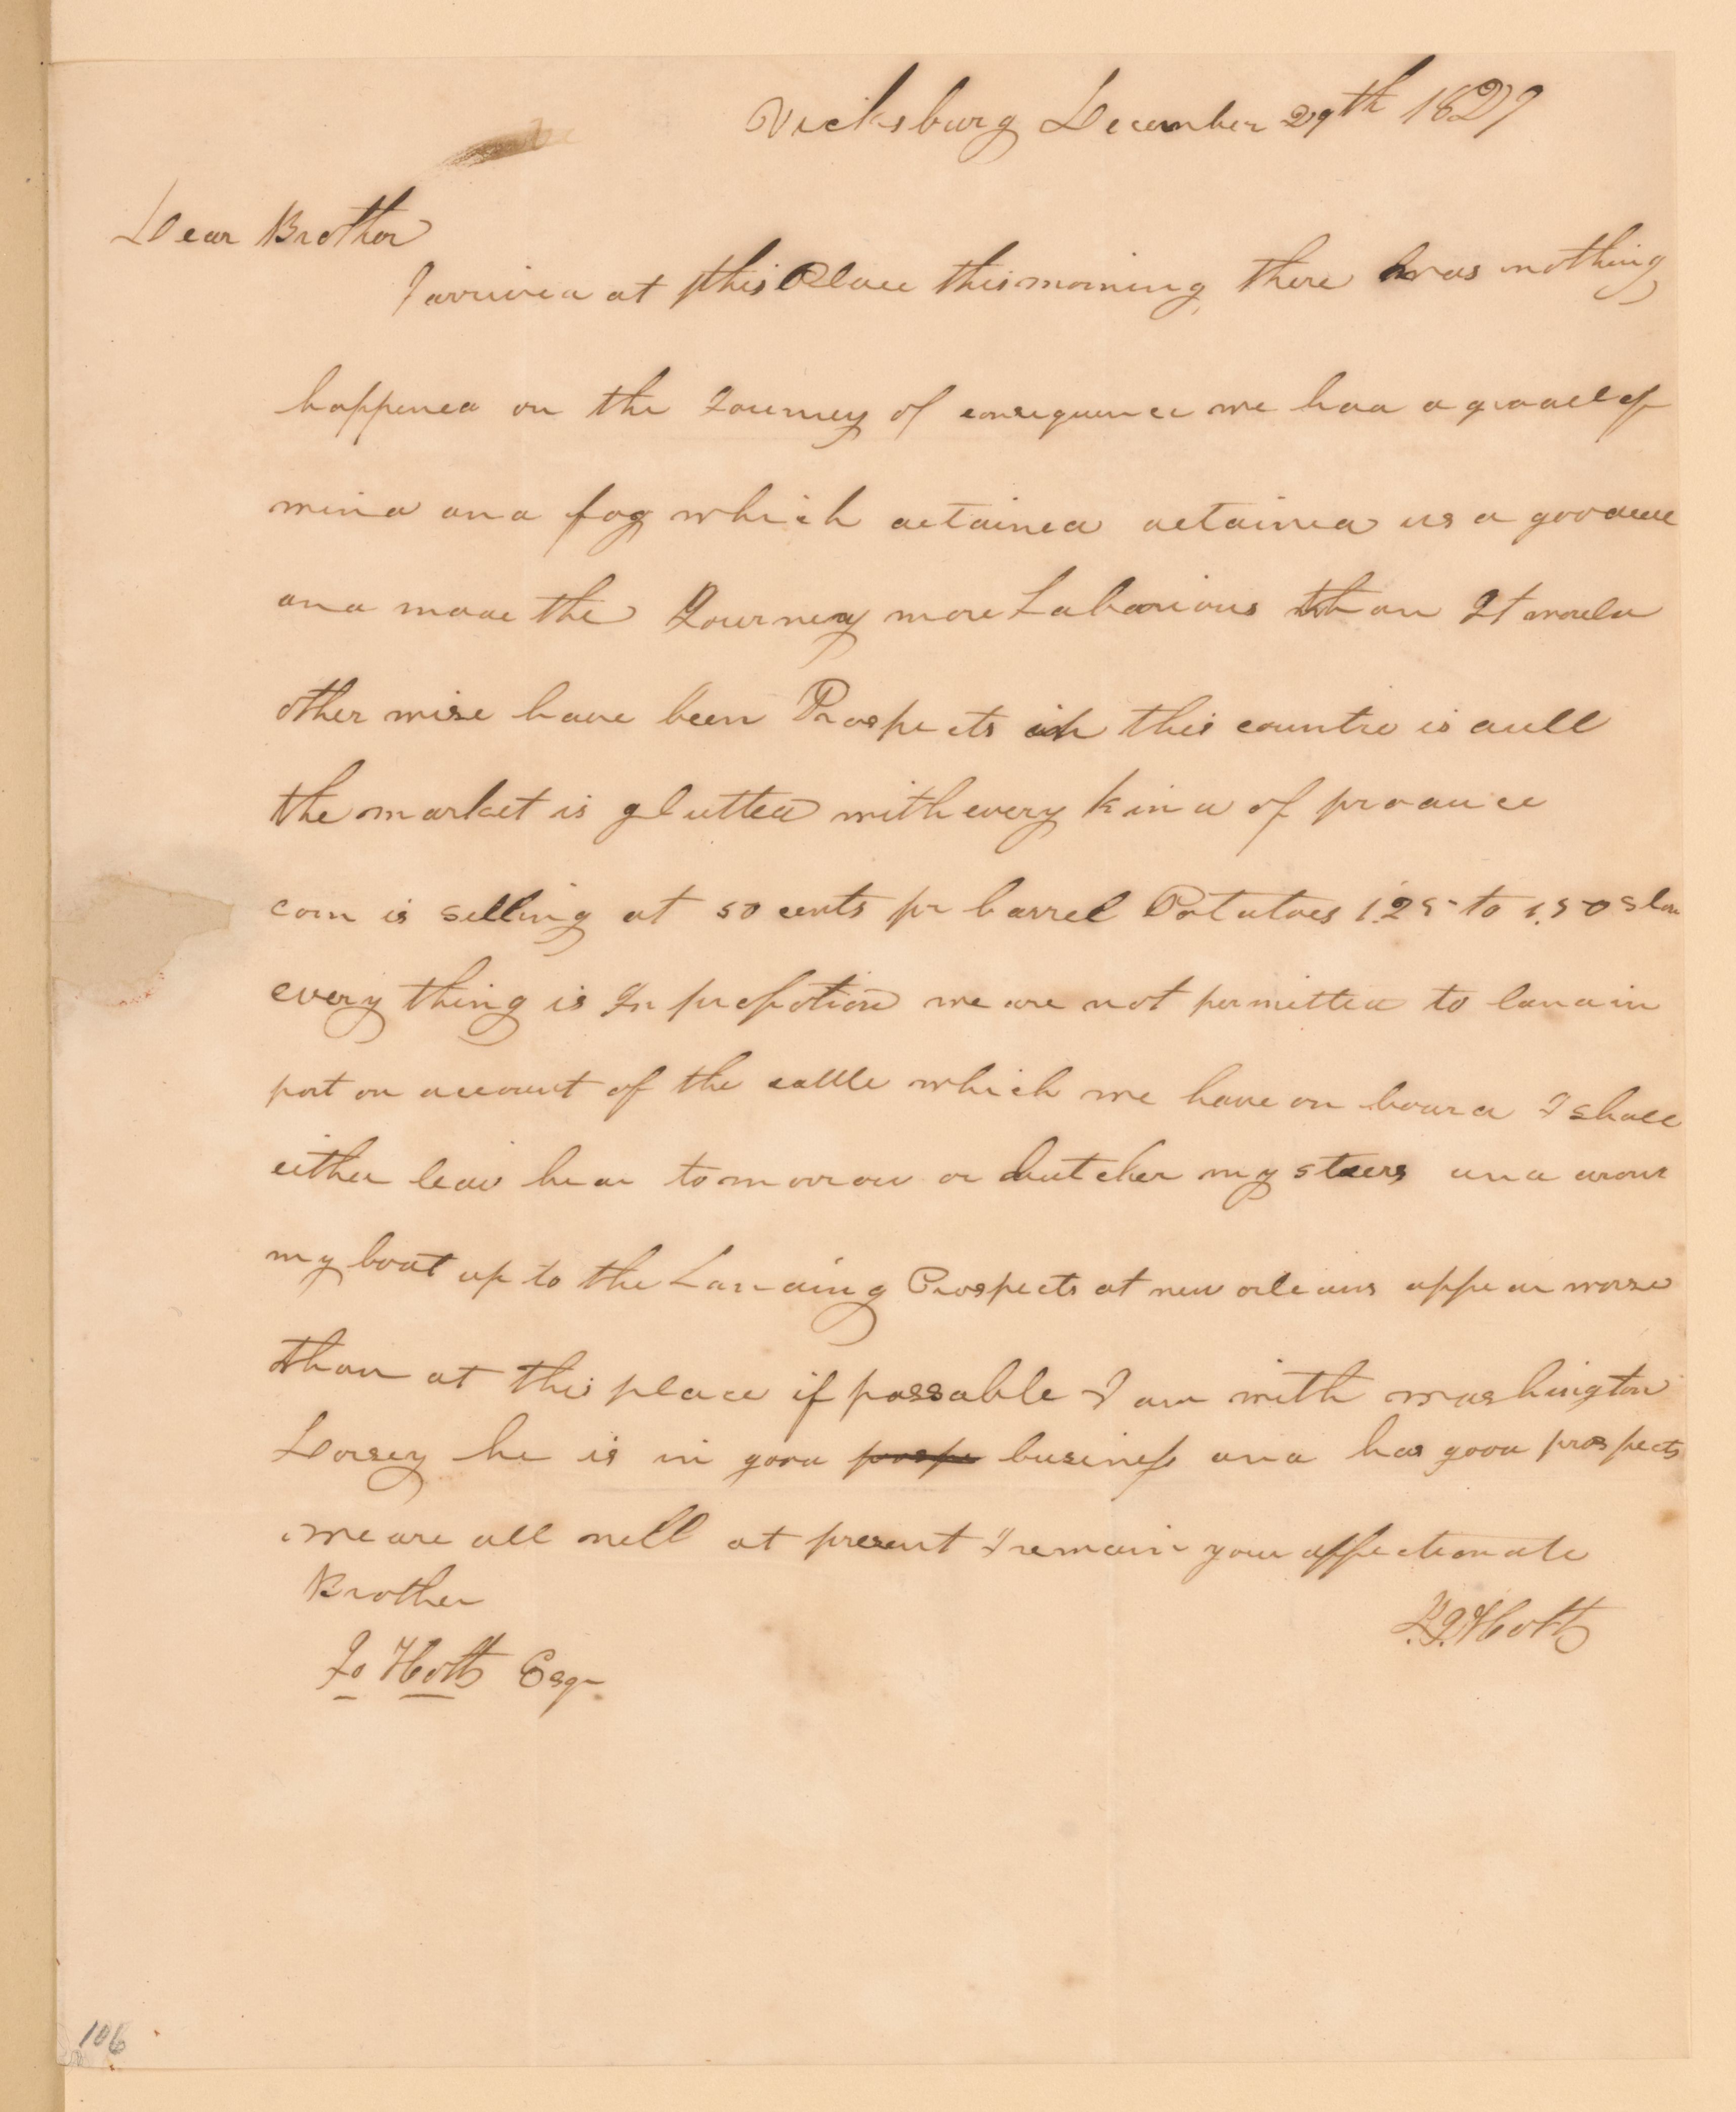 Vicksburg December 29th 1827
Dear Brother
I arrived at this Place this morning, there was nothing
happened on the Journey of consequence we had a good del of
wind and fog which detained detained us a good
and made the Journey more Laborious than It would
other wise have been Prospects in this countre is dull
the market is glutted with every kind of produce
corn is selling at 50 cents pr barrel Potatoes 1.25 to 1.50
every thing is In propotion we are not permitted to land in
port on account of the cattle which we have on board I shall
either leav hear tomorrow or butcher my steers and
my boat up to the Landing Prospects at new orleans appear worse
than at this place if possable I am with washington
Dorsey he is in good business and has good prospects
we are all well at present I remain your affectionate
Brother
Holt
Jo Holt Esqr
106